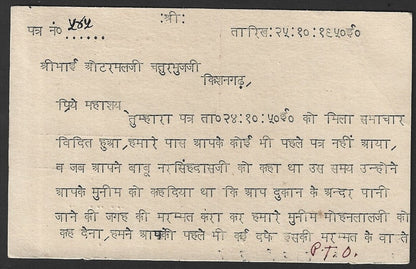 श्री:
पत्र नं० ५४५ तारिख:२५:१०:१९५०ई०
श्रीभाई श्रीटरमलजी चतुरभुजजी
किशनगढ़,
प्रिये महाशय
तुम्हारा पत्र ता०२४:१०:५०ई० को मिला समाचार
विदित हुआ, हमारे पास आपके कोई भी पहले पत्र नहीं आया,
व जब आपने बाबू नरसिंहदासजी को कहा था उस समय उन्होने
आपके मुनीम को कहदिया था कि आप दुकान के अन्दर पानी
जाने की जगह की मरम्मत करा कर हमारे मुनीम मोहनलालजी को
कह देना, हमने आपको पहले भी कई दफे इसकी मरम्मत के वास्ते
P.T.O.